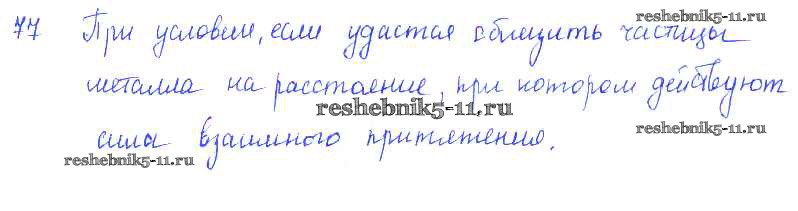 77 При условии, если удастся сблизить частицы
металла на расстояние, при котором действуют
сила взаимного притяжения.
reshebnik5-11.ru
reshebnik5-11.ru
reshebnik5-11.ru
reshebnik5-11.ru